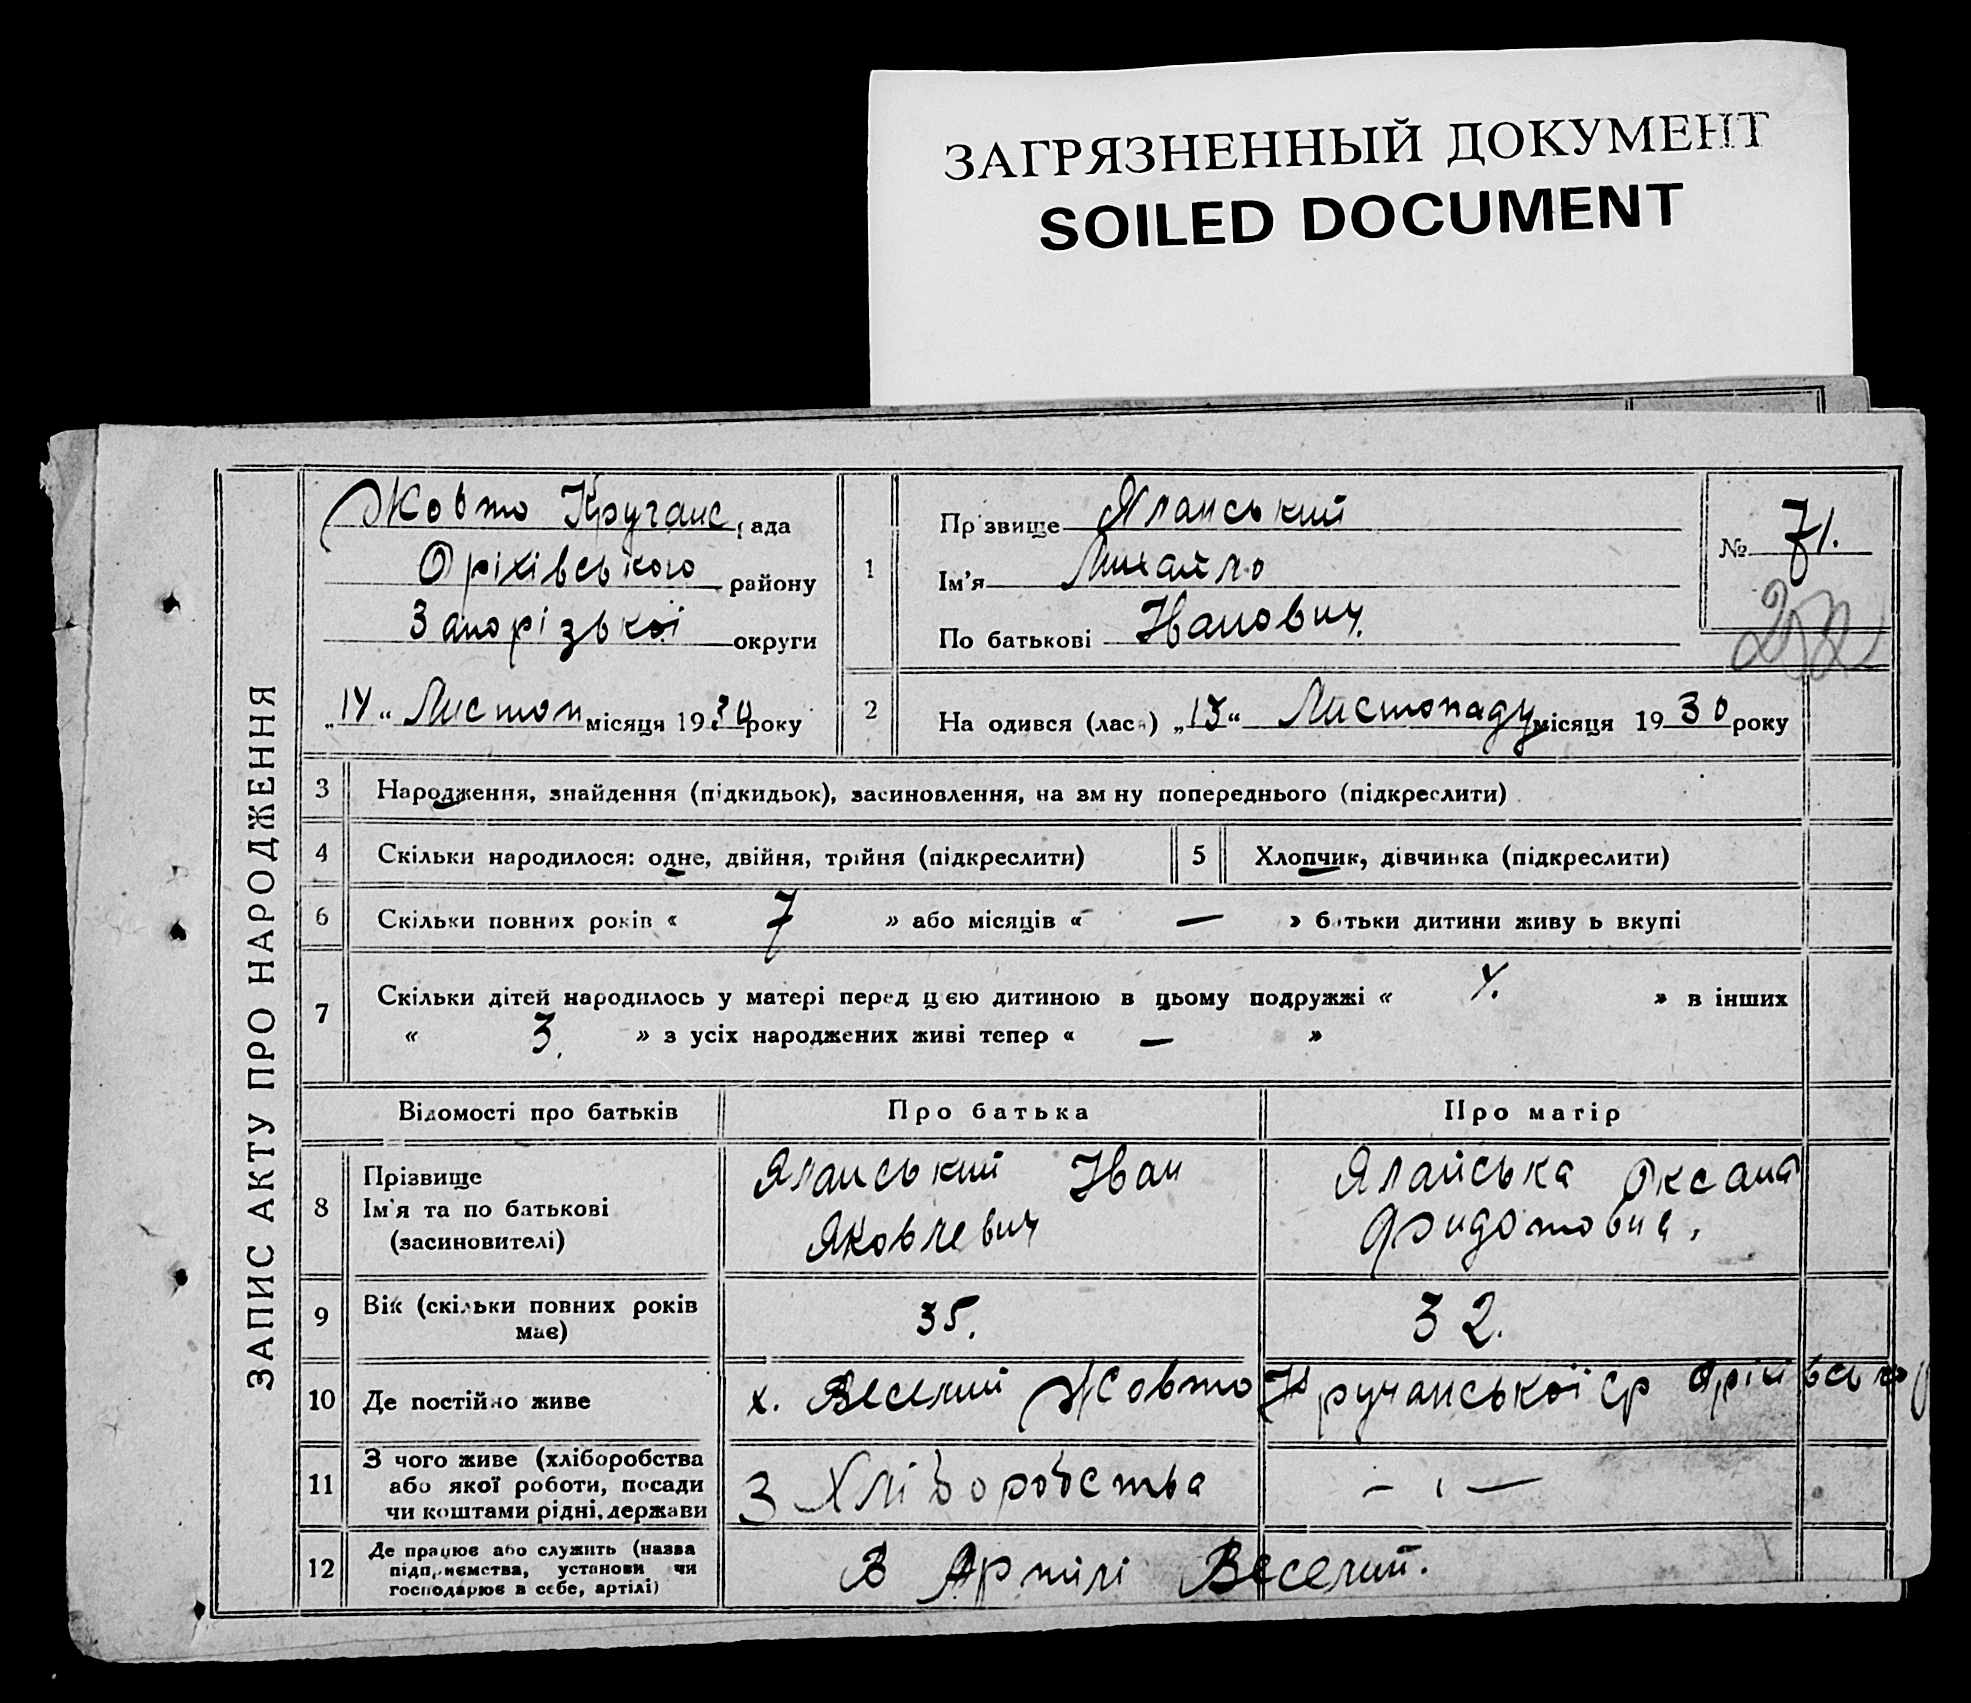 ЗАГРЯЗНЕННЫЙ ДОКУМЕНТ
SOILED DOCUMENT
ЗАПИС АКТУ ПРО НАРОДЖЕННЯ
Жовто Кручанс рада
Оріхівського району
Запорізької округи
„14“ Листоп місяця 1930 року
1
Прізвище Яланський
Ім'я Михайло
По батькові Іванович
№ 71.
2
На одився (лась) „13“ Листопаду місяця 1930 року
3 Народження, знайдення (підкидьок), засиновлення, на зм ну попереднього (підкреслити)
4 Скільки народилося: одне, двійня, трійня (підкреслити)
5 Хлопчик, дівчинка (підкреслити)
6 Скільки повних років « 7 » або місяців « — » батьки дитини живу ь вкупі
7 Скільки дітей народилось у матері перед цією дитиною в цьому подружжі « 4. » в інших
« 3. » з усіх народжених живі тепер « — »
Відомості про батьків Про батька Про матір
8 Прізвище
Ім'я та по батькові
(засиновителі)
Яланський Іван
Яковлевич
Яланська Оксана
9 Вік (скільки повних років
має)
35.
32.
10 Де постійно живе
х. Веселий Жовто Кручанської ср Оріхівсько
11 З чого живе (хліборобства
або якої роботи, посади
чи коштами рідні, держави
З Хліборобства
— ı —
12 Де працює або служить (назва
підприємства, установи чи
господарює в себе, артілі)
В Артілі Веселий.